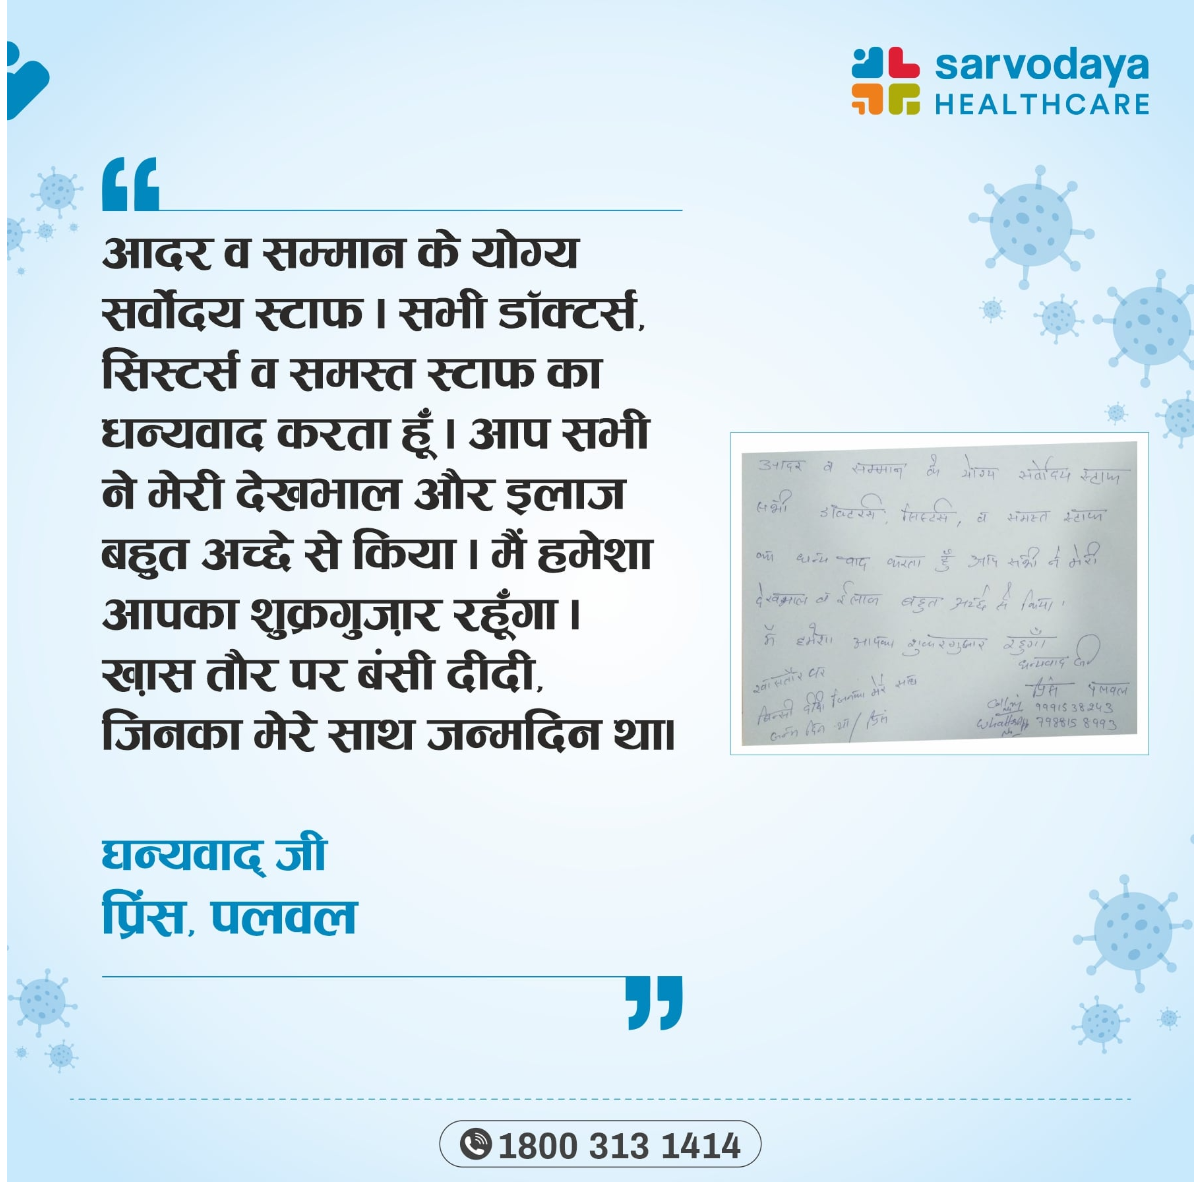 sarvodaya
HEALTHCARE
“
आदर व सम्मान के योग्य
सर्वोदय स्टाफ । सभी डॉक्टर्स,
सिस्टर्स व समस्त स्टाफ का
धन्यवाद करता हूँ । आप सभी
ने मेरी देखभाल और इलाज
बहुत अच्छे से किया । मैं हमेशा
आपका शुक्रगुज़ार रहूँगा ।
ख़ास तौर पर बंसी दीदी,
जिनका मेरे साथ जन्मदिन था।
धन्यवाद् जी
प्रिंस, पलवल
”
आदर व सम्मान के योग्य सर्वोदय स्टाफ
सभी डॉक्टरर्स, सिस्टर्स, व समस्त स्टाफ
का धन्य-वाद करता हुँ आप सभी ने मेरी
देखभाल व ईलाज बहुत अच्छे से किया।
मैं हमेशा आपका शुकरगुजार रहुगाँ
धन्यवाद जी
खासतौर पर
दीदी जिनका मेरे साथ
जन्म दिन था / प्रिंस
प्रिंस पलवल
1800 313 1414